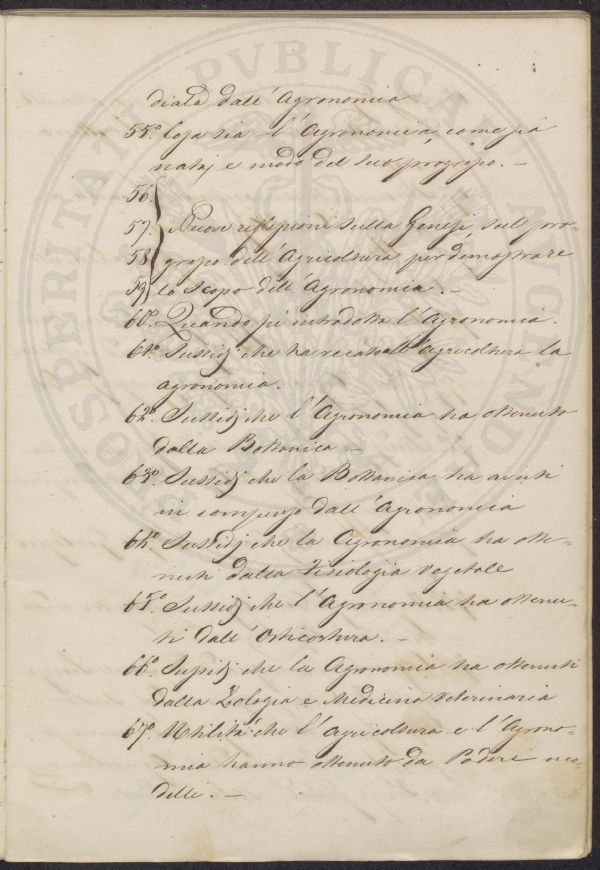 diata dall'Agronomia
55.° Cosa sia l'Agronomia, come sia
nata, e modo del suo progresso. –
56.
57. Nuove riflessioni sulla Genesi, sul pro-
58 gresso dell'Agricoltura per dimostrare
59 lo Scopo dell'Agronomia. –
60.° Quando si introdotta l'Agronomia.
61.° Sussidj che ha recato all'Agricoltura la
agronomia.
62.° Sussidj che l'Agronomia ha ottenuto
dalla Bottanica –
63.° Sussidj che la Bottanica ha avuti
in compenso dall'Agronomia
64.° Sussidj che la Agronomia ha otte-
nuti dalla Fisiologia vegetale
65.° Sussidj che l'Agronomia ha ottenu-
ti dall'Orticoltura. –
66.° Sussidj che la Agronomia ha ottenuti
dalla Zologia e Medicina Veterinaria
67.° Utilità che l'Agricoltura e l'Agrono-
mia hanno ottenuto da Poderi mo-
delli. –
PROSPERITATI PVBLICAE AVGENDAE